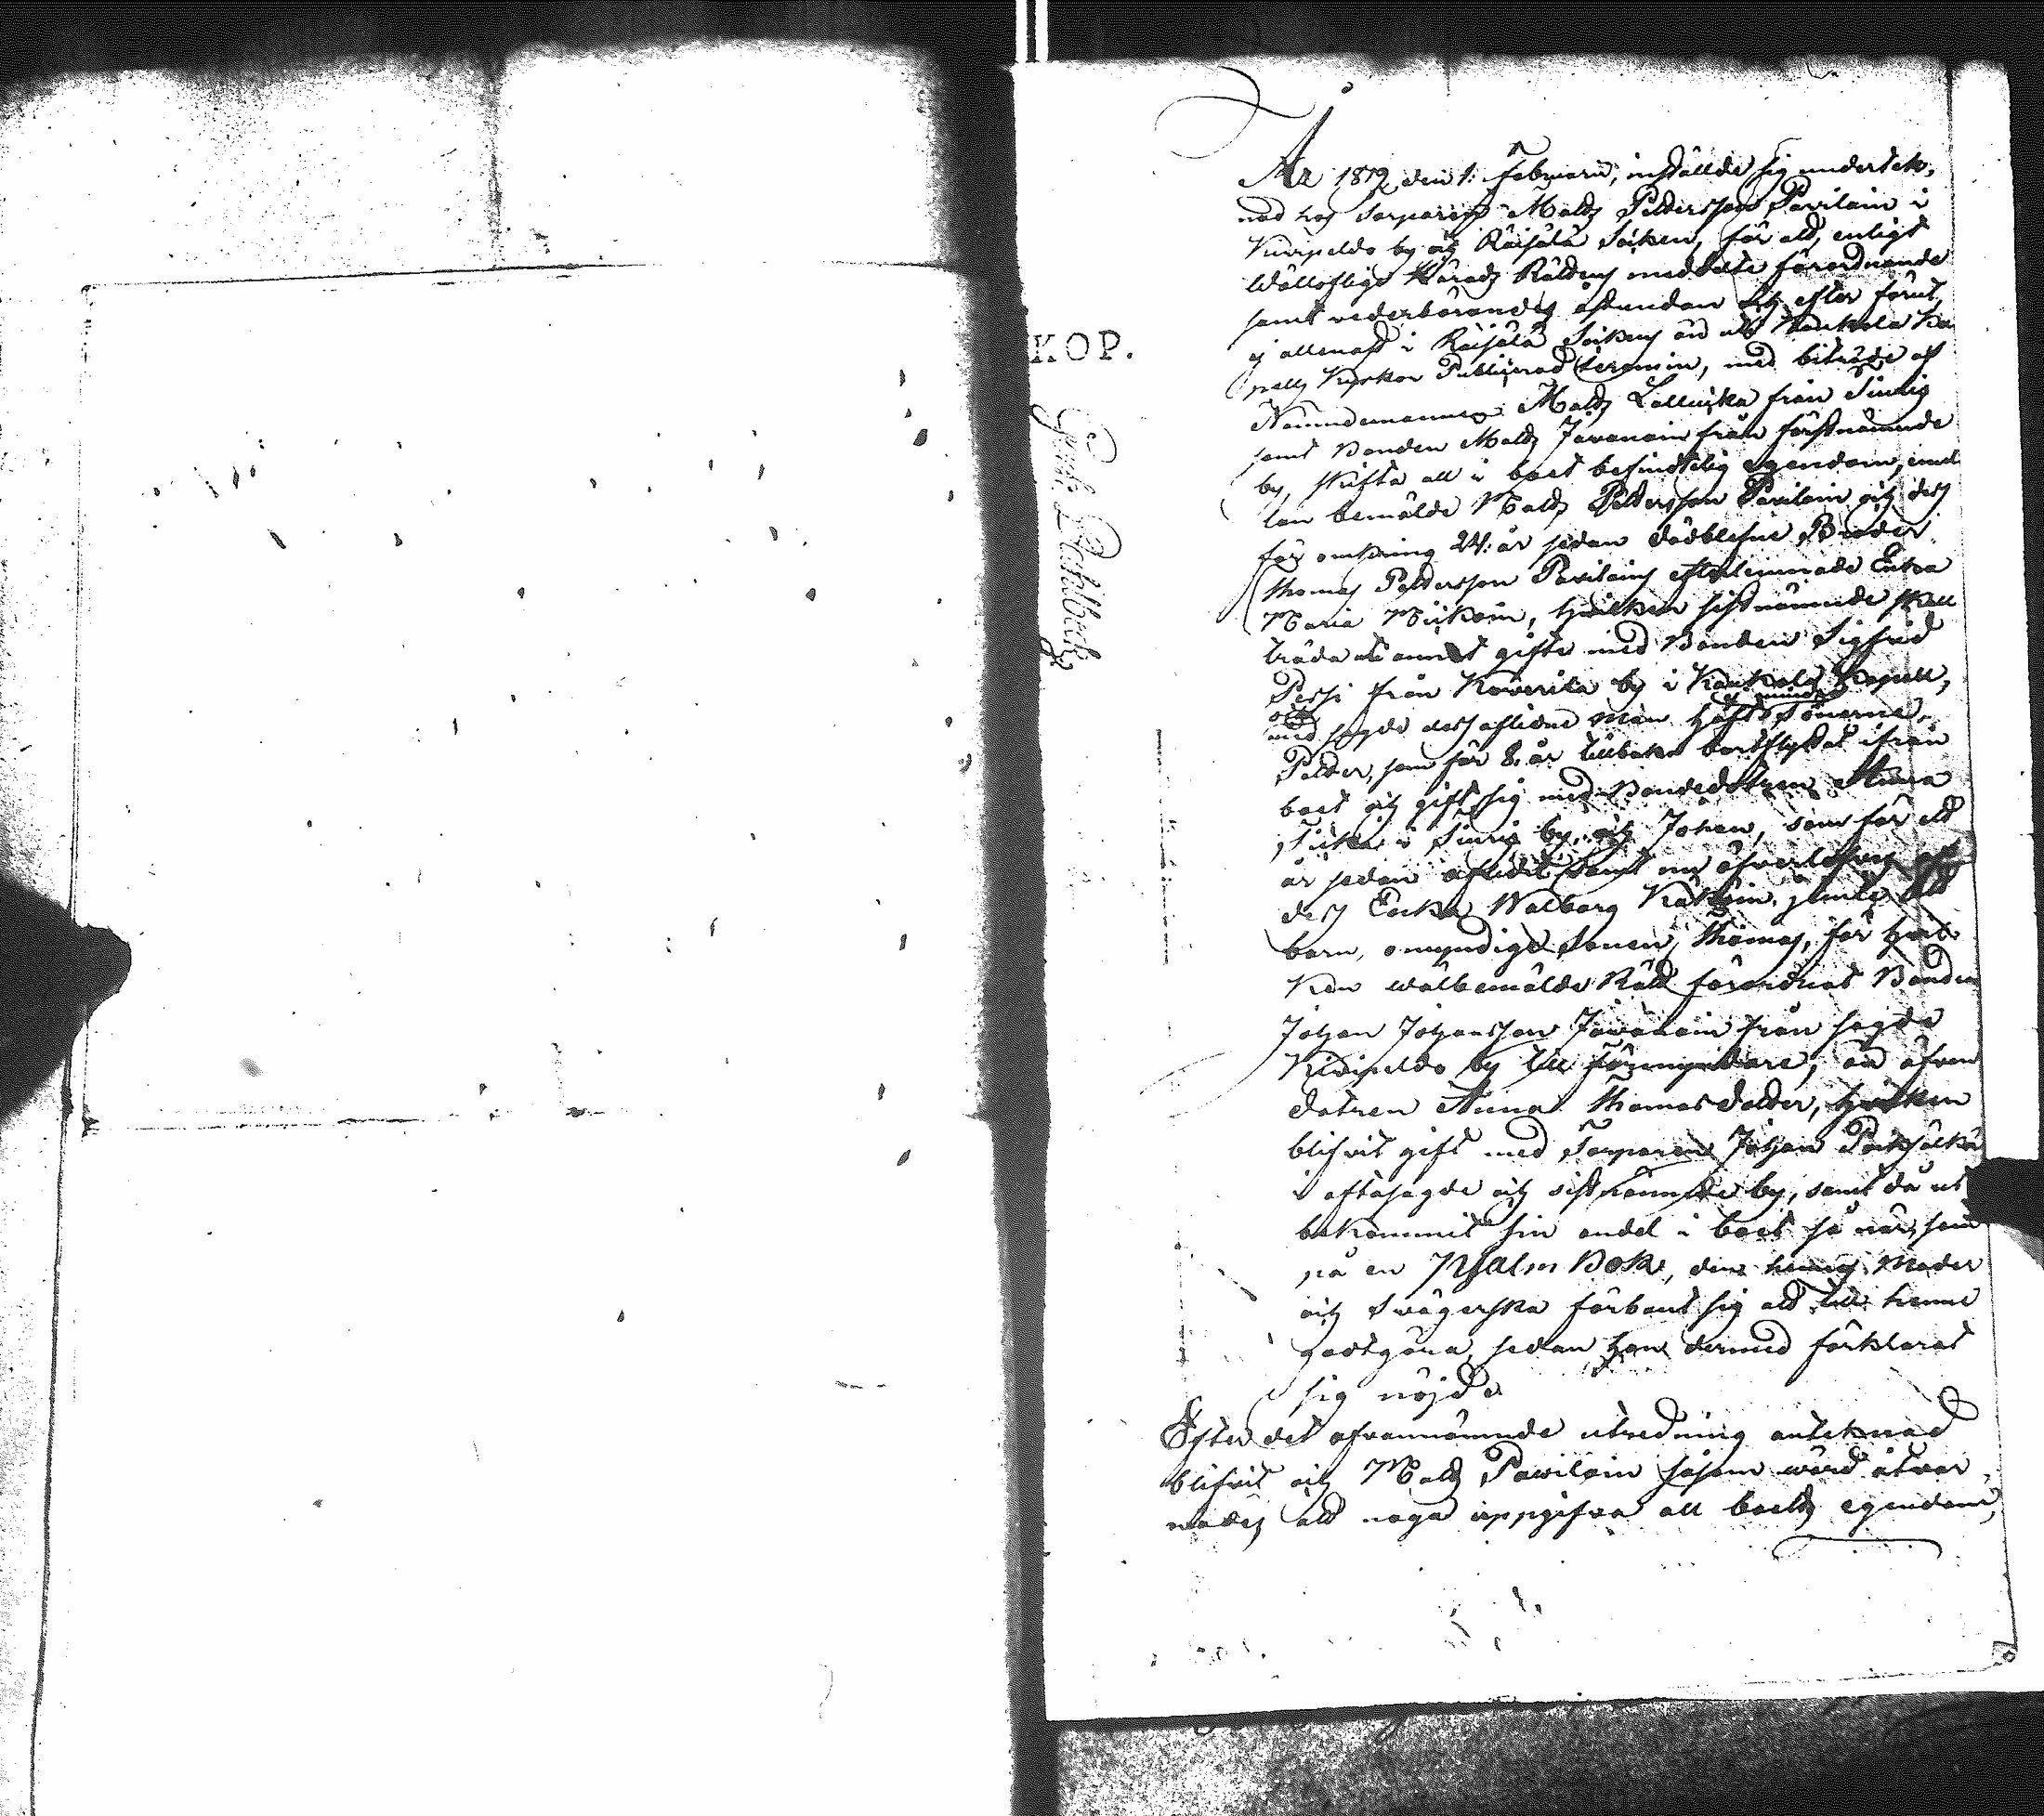 KOP.
Gust. Dahlbeck
År 1812 den 1: Februarii, instälde sig underteknad
hos Torparen Matts Pettersson Pavilain i
Kiwipeldo by och Räisälä Soken, för att, enligt
Wällofliga Härads Rättens meddelte förordnande
samt vederbörandes åstundan och efter förut,
ej allenast i Räisälä Sokens än ock Kaukola Ka
pells Kyrkor Publicerad termin, med biträde af
Nämndemannen Matts Lallukka från
samt Bonden Matts Javanain från förstnämnde
by, skifta all i boet befindtelig egendom, emel
lan bemälde Matts Pettersson Pavilain och dess
för omkring 24: år sedan dödblefne Broder
Thomas Pettersson Pavilains efterlemnade Enka
Maria Miikain, hvilken sistnämnde skall
träda uti annat gifte med Bonden Sigfrid
Pessi från Koverila by i Kaukola Kapell,
med sagde dess aflidne man haft Sönerne
Petter, som för 8. år tillbaka bortflyttat ifrån
boet och gift sig med Bondedotren Anna
i by, och Johan, som för ett
år sedan aflidit samt nu öfverlefves af
dess Enka Walborg jemte ett
barn, omyndige Sonen Thomas, för hvil
ken wälbemälde Rätt förordnat Bonden
Johan Johansson Javanain från sagde
Kiwipeldo by till Förmyndare, än äfven
dotren Anna Thomasdotter, hvilken
blifvit gift med Torparen Johan
i oftasagde och sistnämnde by, samt då ut
bekommit sin andel i boet så när, som
på en Psalm Bok, den hennes Moder
och Svägerska förbant sig att till henne
godtgöra, sedan han dermed förklarat
sig nöjd
Efter det ofvannämnde utredning anteknad
blifvit och Matts Pavilain såsom wärd åtvar
nades att noga uppgifva all boets egendom,